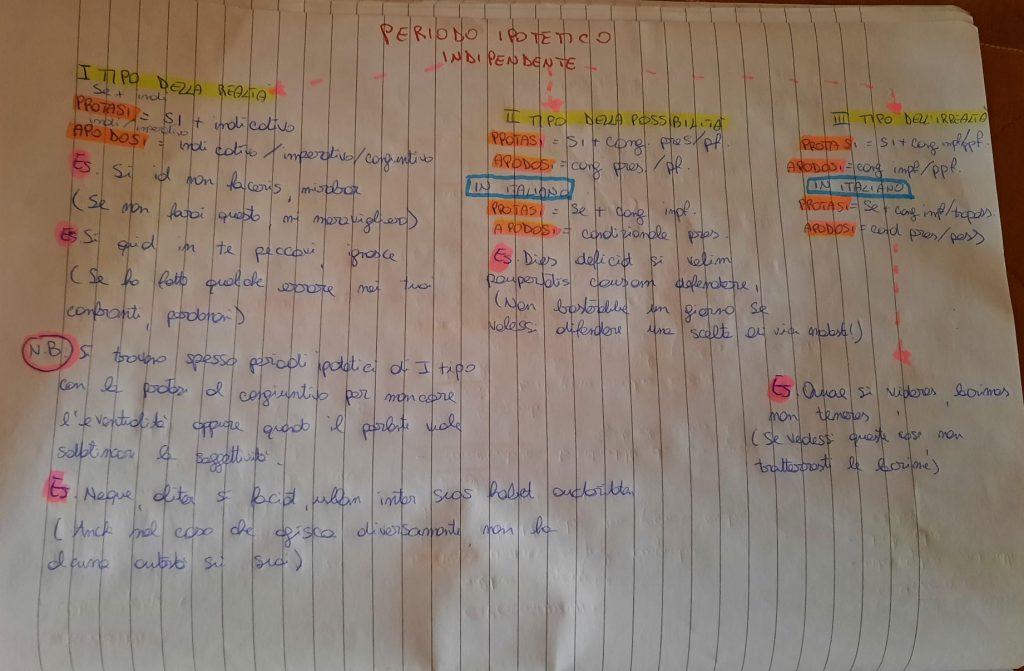 PERIODO IPOTETICO
INDIPENDENTE
I TIPO DELLA REALTÀ
Se + indi
PROTASI = SI + indicativo
indi/imperativo
APODOSI = indicativo/imperativo/congiuntivo
Es. Si id non faceris, mirabor
(Se non farai questo, mi meraviglierò)
Es Si quid in te peccavi, ignosce
(Se ho fatto qualche errore nei tuoi
confronti, perdonami)
N.B. Si trovano spesso periodi ipotetici di I tipo
con la protasi al congiuntivo per marcare
l'eventualità oppure quando il parlante vuole
sottolineare la soggettività.
Es. Neque, aliter si faciat, ullam inter suos habet auctoritatem
(Anche nel caso che agisca diversamente non ha
alcuna autorità sui suoi)
II TIPO DELLA POSSIBILITÀ
PROTASI = Si + cong. pres/pf.
APODOSI = cong pres./pf.
IN ITALIANO
PROTASI = Se + cong impf.
APODOSI = condizionale pres.
Es. Dies deficiat si velim
paupertatis causam defendere,
(Non basterebbe un giorno se
volessi difendere una scelta di vita modesta)
III TIPO DELL'IRREALTÀ
PROTASI = Si + cong impf/ppf.
APODOSI = cong impf/ppf.
IN ITALIANO
PROTASI = Se + cong imp/trapass.
APODOSI = cond pres/pass
Es. Quae si videres, lacrimas
non teneres
(Se vedessi queste cose non
tratterresti le lacrime)